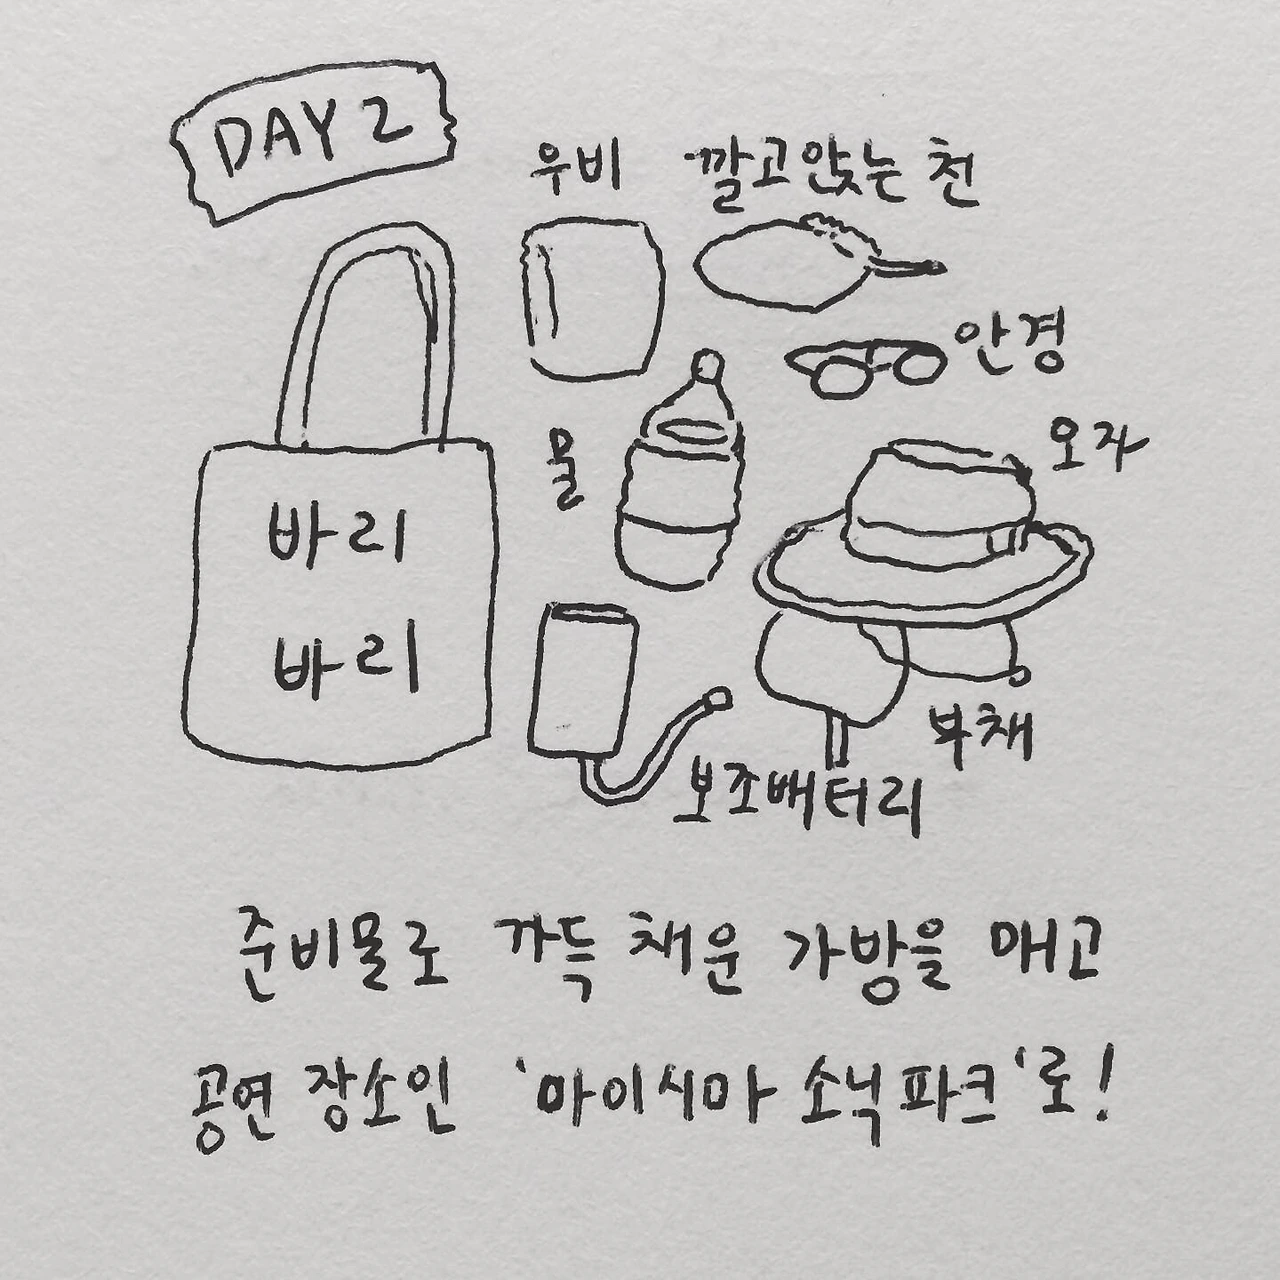 DAY 2
우비
깔고앉는 천
안경
물
모자
바리
바리
부채
보조배터리
준비물로 가득 채운 가방을 매고
공연 장소인 '마이시마 소닉파크'로!